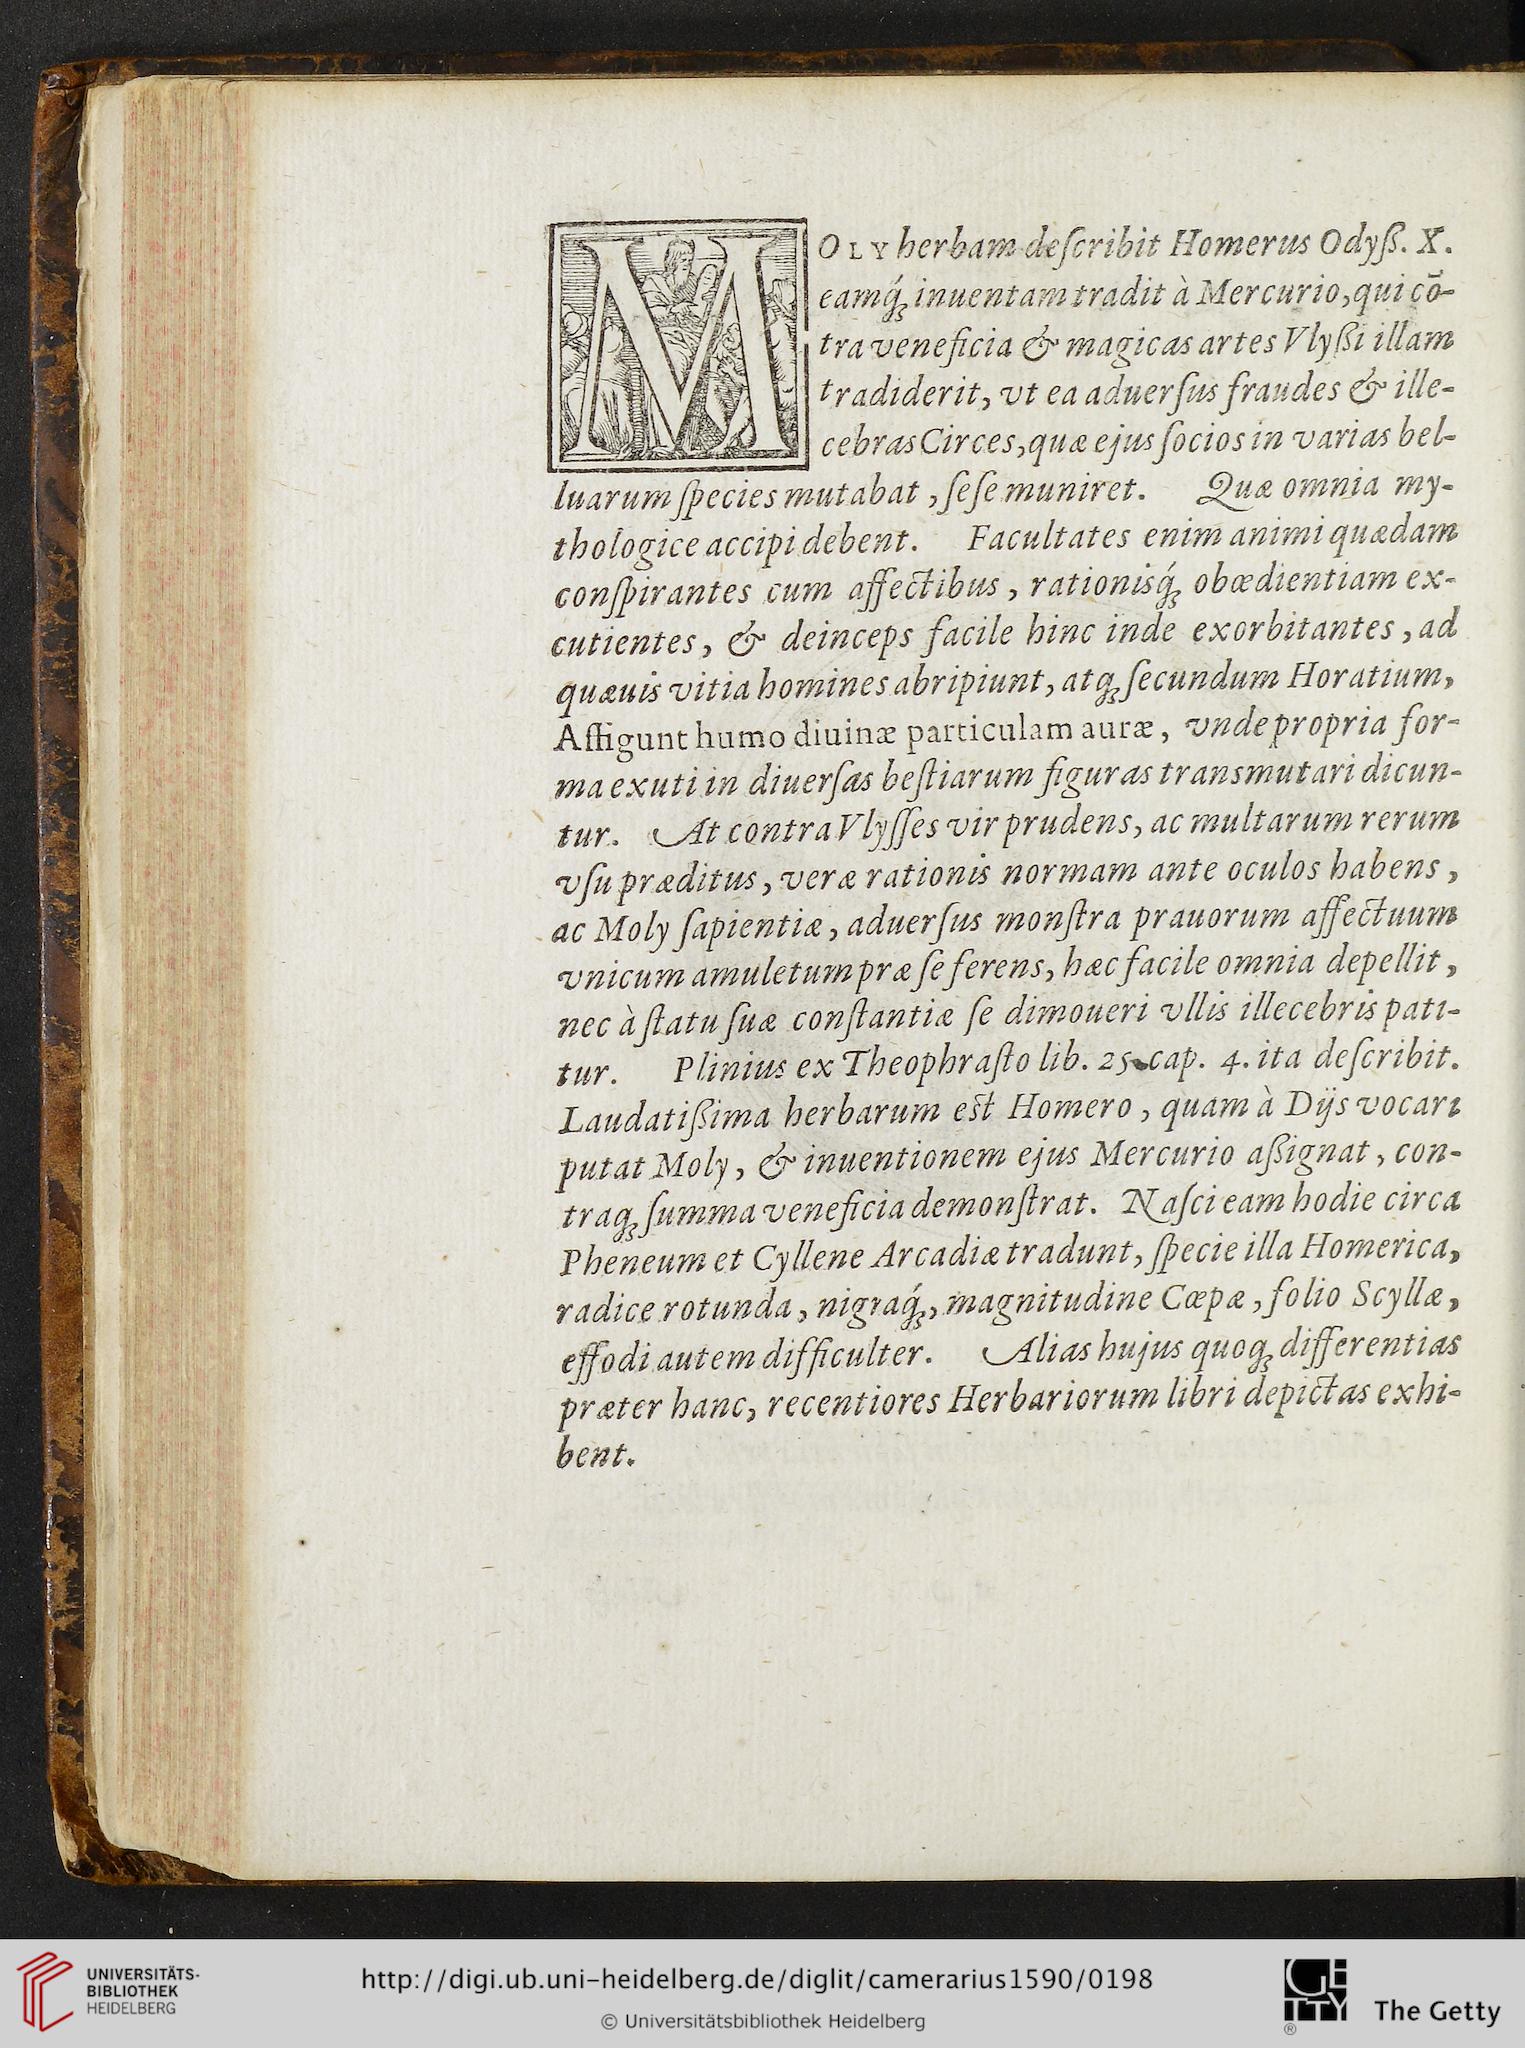 MOLY herbam deſcribit Homerus Odyß. X.
eamq́ꝫ inuentam tradit à Mercurio, qui cō-
tra veneficia & magicas artes Vlyßi illam
tradiderit, vt ea aduerſus fraudes & ille-
cebras Circes, quæ ejus ſocios in varias bel-
luarum ſpecies mutabat, ſeſe muniret. Quæ omnia my-
thologice accipi debent. Facultates enim animi quædam
conſpirantes cum affectibus, rationisq́ꝫ obœdientiam ex-
cutientes, & deinceps facile hinc inde exorbitantes, ad
quæuis vitia homines abripiunt, atqꝫ ſecundum Horatium,
Affigunt humo diuinæ particulam auræ, vnde propria for-
ma exuti in diuerſas beſtiarum figuras transmutari dicun-
tur. At contra Vlyſſes vir prudens, ac multarum rerum
vſu præditus, veræ rationis normam ante oculos habens,
ac Moly ſapientiæ, aduerſus monſtra prauorum affectuum
vnicum amuletum præ ſe ferens, hæc facile omnia depellit,
nec à ſtatu ſuæ conſtantiæ ſe dimoueri vllis illecebris pati-
tur. Plinius ex Theophraſto lib. 25. cap. 4. ita deſcribit.
Laudatißima herbarum est Homero, quam à Dijs vocari
putat Moly, & inuentionem ejus Mercurio aßignat, con-
traqꝫ ſumma veneficia demonſtrat. Naſci eam hodie circa
Pheneum et Cyllene Arcadiæ tradunt, ſpecie illa Homerica,
radice rotunda, nigraq́ꝫ, magnitudine Cœpæ, folio Scyllæ,
effodi autem difficulter. Alias hujus quoqꝫ differentias
præter hanc, recentiores Herbariorum libri depictas exhi-
bent.
UNIVERSITÄTS-
BIBLIOTHEK
HEIDELBERG
http://digi.ub.uni-heidelberg.de/diglit/camerarius1590/0198
© Universitätsbibliothek Heidelberg
GETTY
®
The Getty